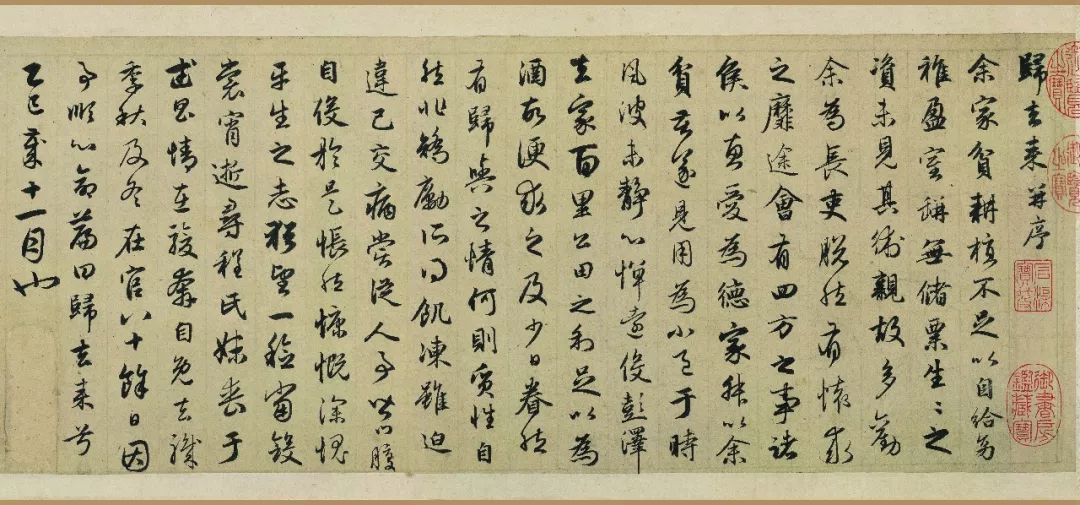 歸去來并序
余家貧耕植不足以自給幼
稚盈室缾無儲粟生〻之
資未見其術親故多勸
余為長吏脫然有懷求
之靡途會有四方之事諸
侯以惠愛為德家叔以余
貧苦遂見用為小邑于時
風波未靜心憚遠役彭澤
去家百里公田之利足以為
酒故便求之及少日眷然
有歸與之情何則質性自
然非矯勵所得飢凍雖迫
違己交病嘗從人事皆口腹
自役於是悵然慷慨深愧
平生之志猶望一稔當斂
裳宵逝尋程氏妹喪于
武昌情在駿奔自免去職
季秋及冬在官八十餘日因
事順心命篇曰歸去來兮
乙巳歲十一月也
石渠寶笈
御書房鑑藏寶